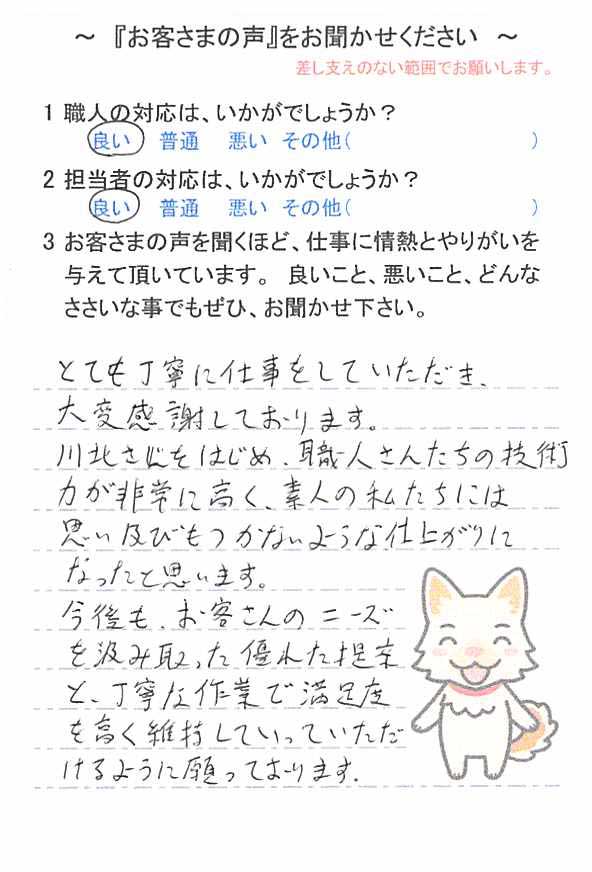 ～ 『お客さまの声』をお聞かせください ～
差し支えのない範囲でお願いします。
1 職人の対応は、いかがでしょうか？
良い 普通 悪い その他( )
2 担当者の対応は、いかがでしょうか？
良い 普通 悪い その他( )
3 お客さまの声を聞くほど、仕事に情熱とやりがいを
与えて頂いています。 良いこと、悪いこと、どんな
ささいな事でもぜひ、お聞かせ下さい。
とても丁寧に仕事をしていただき、
大変感謝しております。
川北さんをはじめ、職人さんたちの技術
力が非常に高く、素人の私たちには
思い及びもつかないような仕上がりに
なったと思います。
今後も、お客さんのニーズ
を汲み取った優れた提案
と、丁寧な作業で満足度
を高く維持していっていただ
けるように願っております。